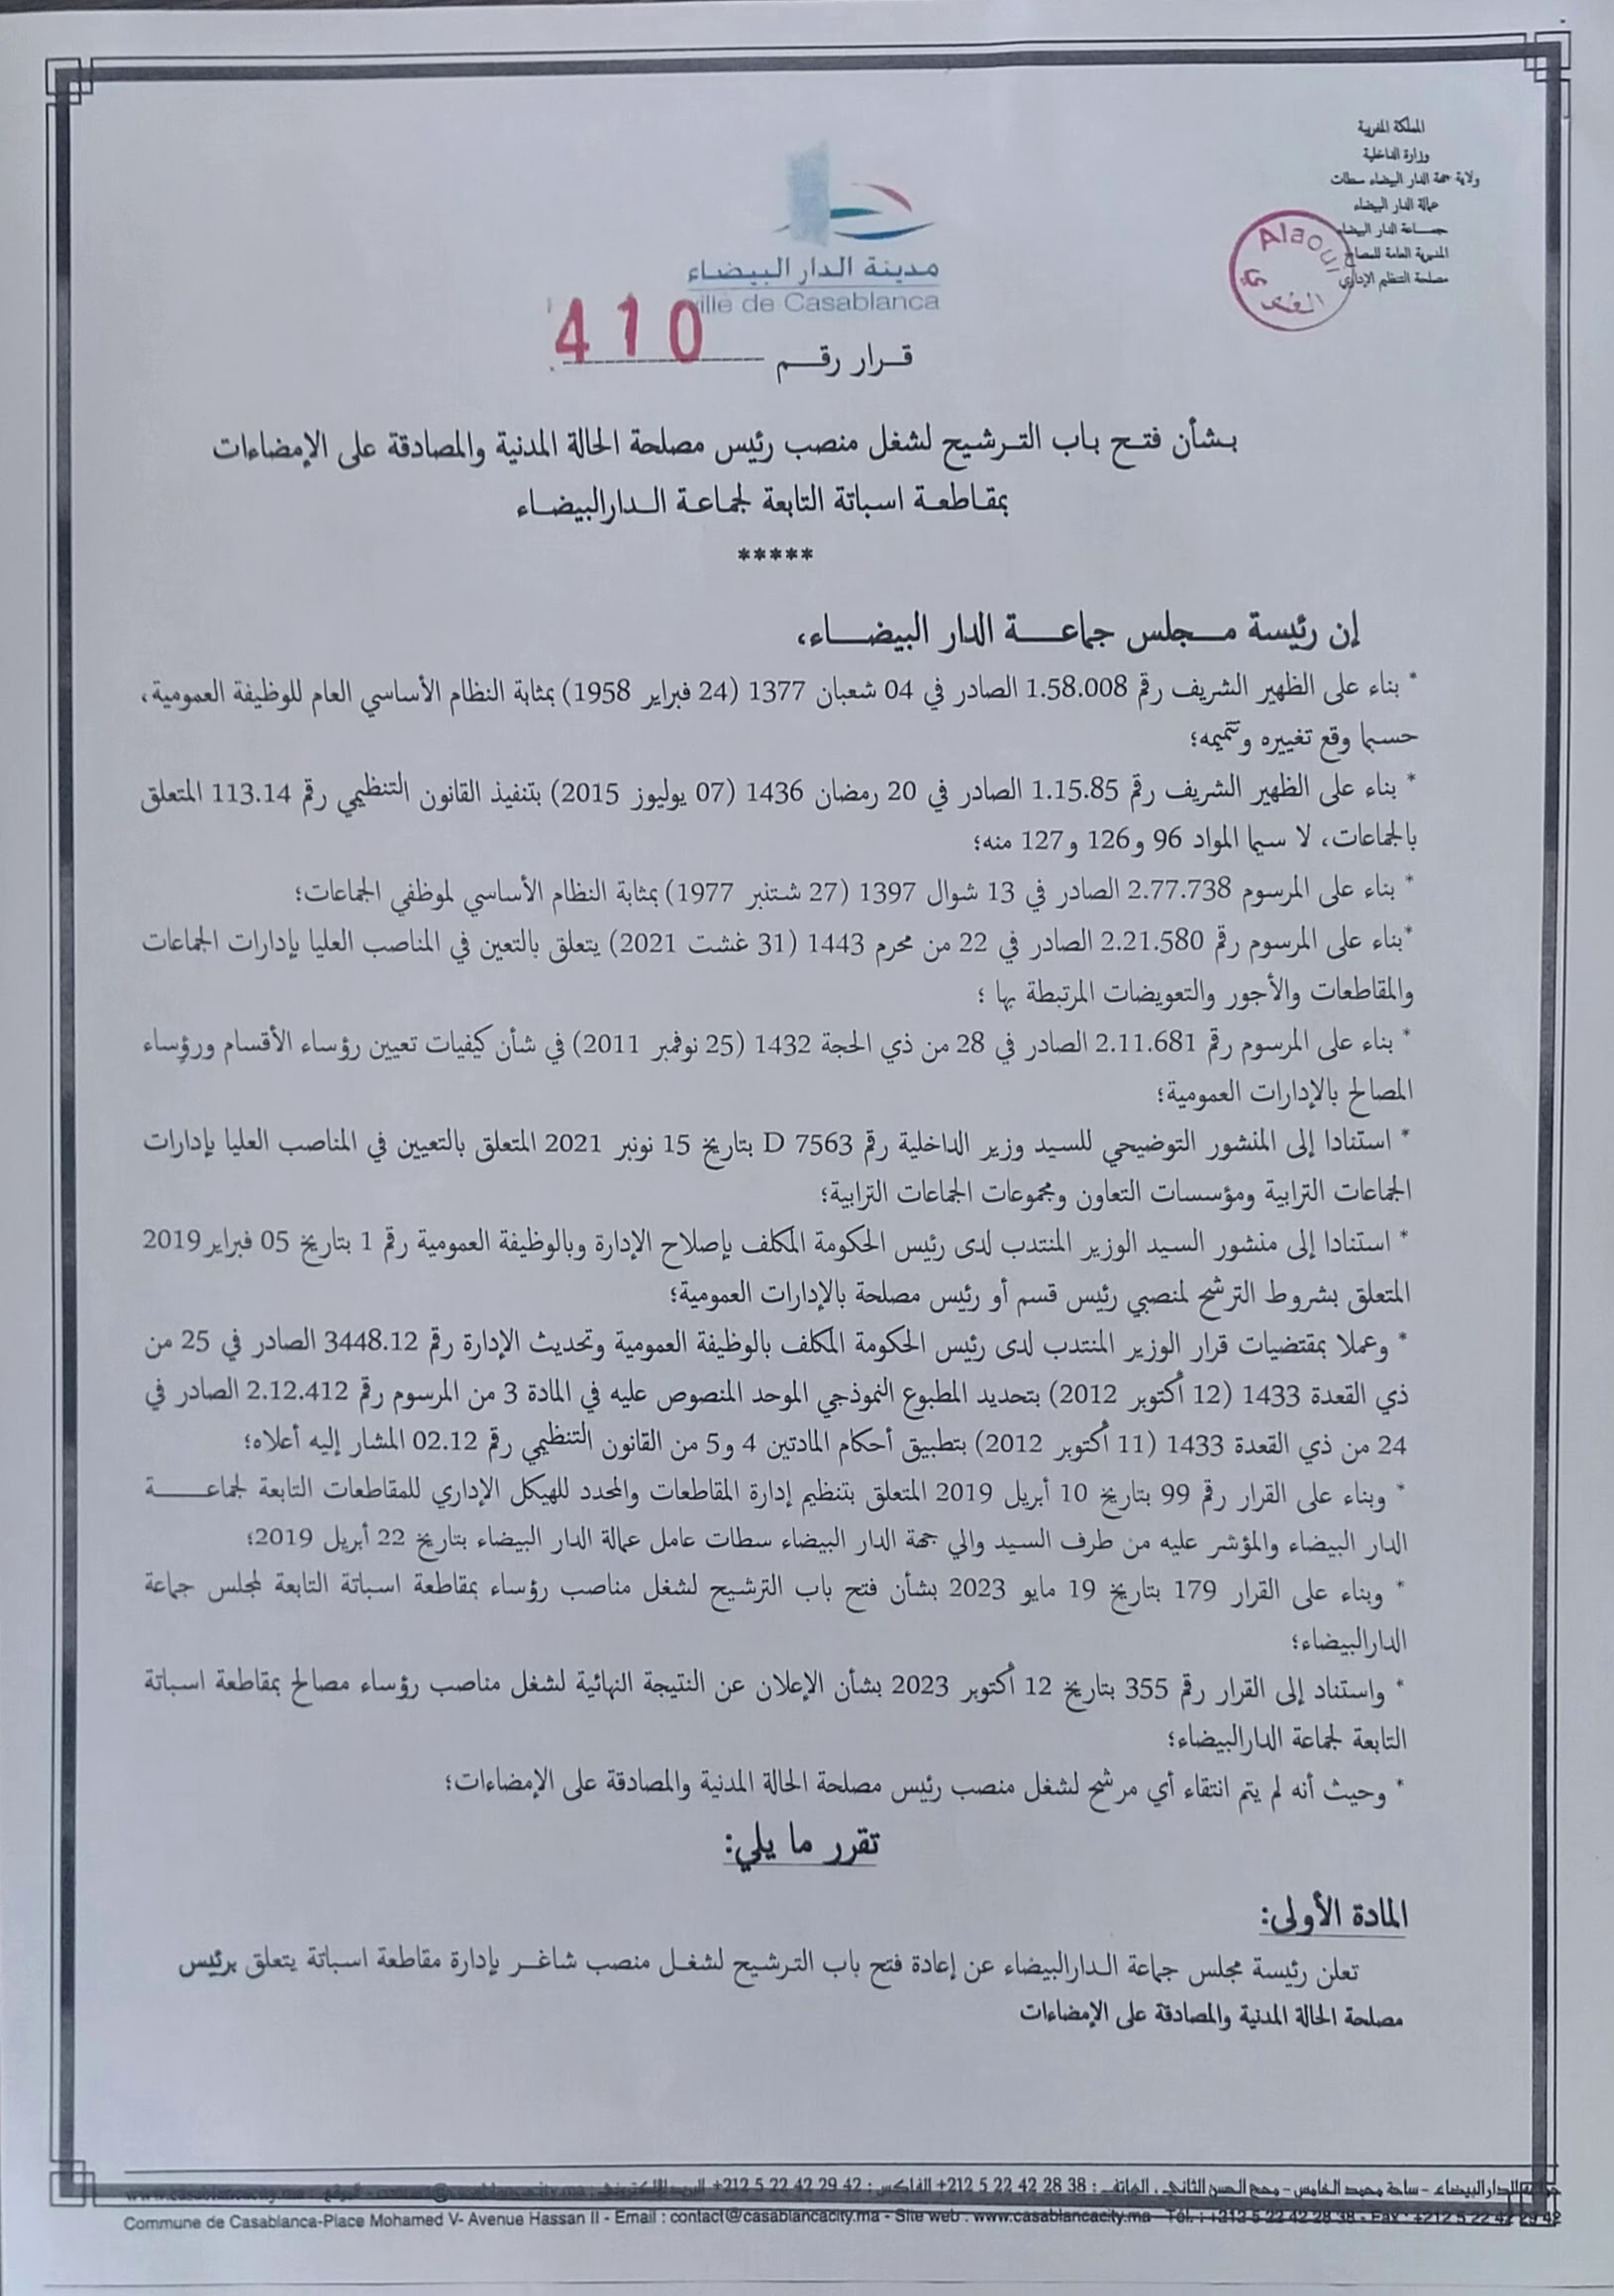 المملكة المغربية
وزارة الداخلية
ولاية جهة الدار البيضاء سطات
عمالة الدار البيضاء
جمـــاعة الدار البيضاء
المديرية العامة للمصالح
مصلحة التنظيم الإداري
Alaoui
مدينة الدار البيضاء
ville de Casablanca
قـرار رقـم 410
بـشأن فتـح بـاب التـرشيح لـشغل منـصب رئيس مصلحة الحالة المدنية والمصادقة على الإمضاءات
بمقـاطعـة اسباتة التابعة لجماعـة الـدارالبيضـاء
*****
إن رئيسة مـجلس جماعـة الدار البيضـاء،
* بناء على الظهير الشريف رقم 1.58.008 الصادر في 04 شعبان 1377 (24 فبراير 1958) بمثابة النظام الأساسي العام للوظيفة العمومية،
حسبما وقع تغييره وتتميمه؛
* بناء على الظهير الشريف رقم 1.15.85 الصادر في 20 رمضان 1436 (07 يوليوز 2015) بتنفيذ القانون التنظيمي رقم 113.14 المتعلق
بالجماعات، لا سيما المواد 96 و126 و127 منه؛
* بناء على المرسوم 2.77.738 الصادر في 13 شوال 1397 (27 شتنبر 1977) بمثابة النظام الأساسي لموظفي الجماعات؛
*بناء على المرسوم رقم 2.21.580 الصادر في 22 من محرم 1443 (31 غشت 2021) يتعلق بالتعين في المناصب العليا بإدارات الجماعات
والمقاطعات والأجور والتعويضات المرتبطة بها ؛
* بناء على المرسوم رقم 2.11.681 الصادر في 28 من ذي الحجة 1432 (25 نوفمبر 2011) في شأن كيفيات تعيين رؤساء الأقسام ورؤساء
المصالح بالإدارات العمومية؛
* استنادا إلى المنشور التوضيحي للسيد وزير الداخلية رقم D 7563 بتاريخ 15 نونبر 2021 المتعلق بالتعيين في المناصب العليا بإدارات
الجماعات الترابية ومؤسسات التعاون ومجموعات الجماعات الترابية؛
* استنادا إلى منشور السيد الوزير المنتدب لدى رئيس الحكومة المكلف بإصلاح الإدارة وبالوظيفة العمومية رقم 1 بتاريخ 05 فبراير2019
المتعلق بشروط الترشح لمنصبي رئيس قسم أو رئيس مصلحة بالإدارات العمومية؛
* وعملا بمقتضيات قرار الوزير المنتدب لدى رئيس الحكومة المكلف بالوظيفة العمومية وتحديث الإدارة رقم 3448.12 الصادر في 25 من
ذي القعدة 1433 (12 أكتوبر 2012) بتحديد المطبوع النموذجي الموحد المنصوص عليه في المادة 3 من المرسوم رقم 2.12.412 الصادر في
24 من ذي القعدة 1433 (11 أكتوبر 2012) بتطبيق أحكام المادتين 4 و5 من القانون التنظيمي رقم 02.12 المشار إليه أعلاه؛
* وبناء على القرار رقم 99 بتاريخ 10 أبريل 2019 المتعلق بتنظيم إدارة المقاطعات والمحدد للهيكل الإداري للمقاطعات التابعة لجماعـة
الدار البيضاء والمؤشر عليه من طرف السيد والي جهة الدار البيضاء سطات عامل عمالة الدار البيضاء بتاريخ 22 أبريل 2019؛
* وبناء على القرار 179 بتاريخ 19 مايو 2023 بشأن فتح باب الترشيح لشغل مناصب رؤساء بمقاطعة اسباتة التابعة لمجلس جماعة
الدارالبيضاء؛
* واستناد إلى القرار رقم 355 بتاريخ 12 أكتوبر 2023 بشأن الإعلان عن النتيجة النهائية لشغل مناصب رؤساء مصالح بمقاطعة اسباتة
التابعة لجماعة الدارالبيضاء؛
* وحيث أنه لم يتم انتقاء أي مرشح لشغل منصب رئيس مصلحة الحالة المدنية والمصادقة على الإمضاءات؛
تقرر ما يلي:
المادة الأولى:
تعلن رئيسة مجلس جماعة الـدارالبيضاء عن إعادة فتح باب التـرشيح لشغـل منصب شاغـر بإدارة مقاطعة اسباتة يتعلق برئيس
مصلحة الحالة المدنية والمصادقة على الإمضاءات
الدارالبيضاء - ساحة محمد الخامس - محج الحسن الثاني . الهاتف : 38 28 42 22 5 212+ الفاكس : 42 29 42 22 5 212+ البريد الإلكتروني : contact@casablancacity.ma - الموقع : www.casablancacity.ma
Commune de Casablanca-Place Mohamed V- Avenue Hassan II - Email : contact@casablancacity.ma - Site web : www.casablancacity.ma Tél. : +212 5 22 42 28 38 - Fax : +212 5 22 42 29 42